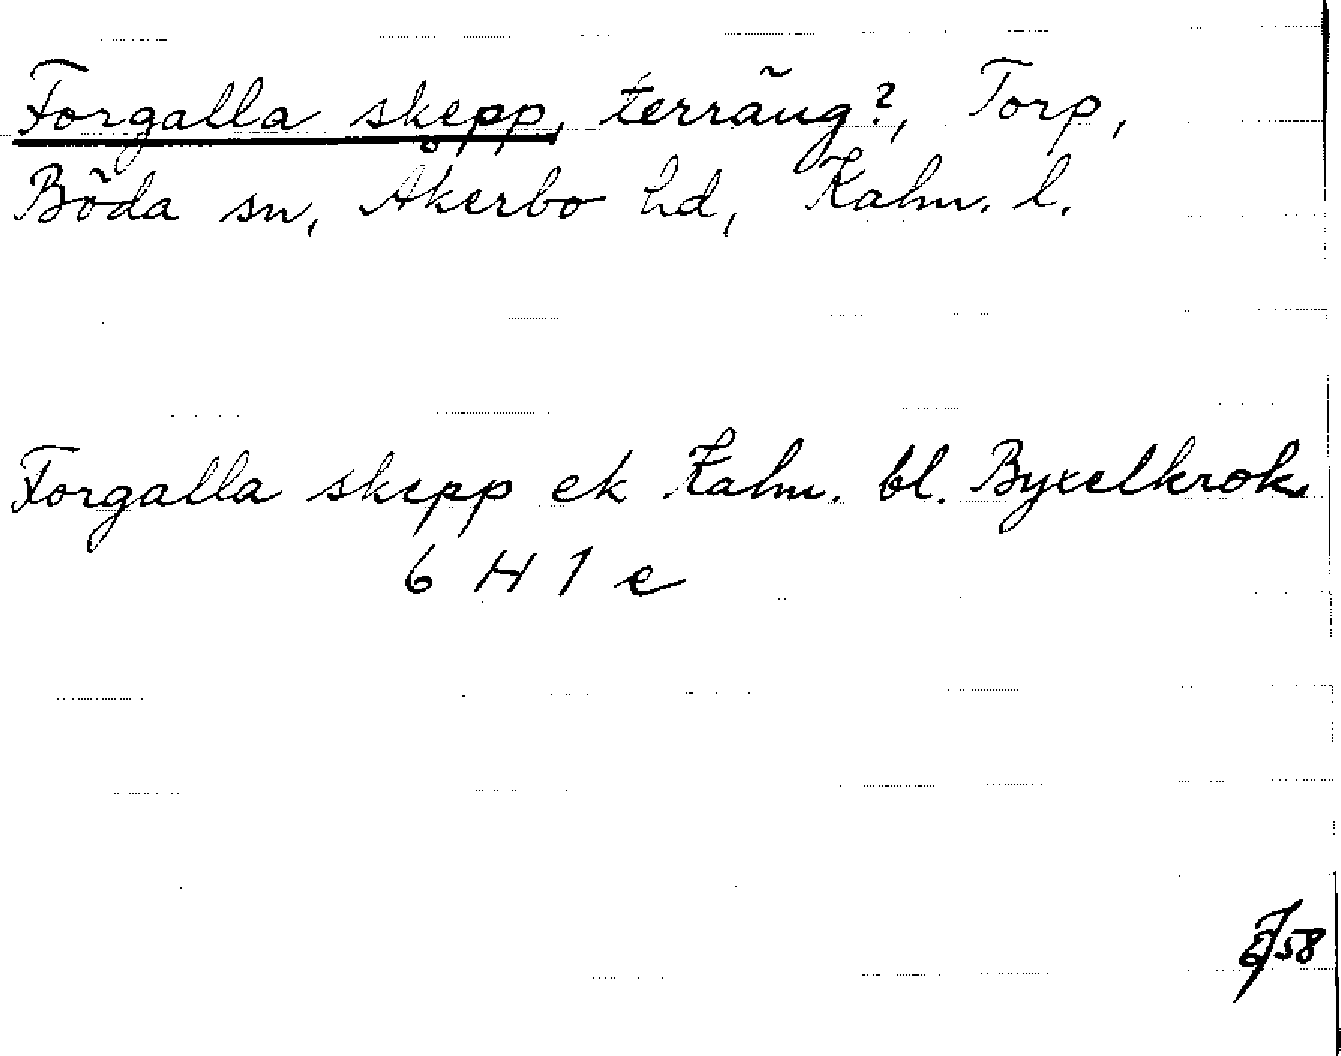 Forgalla skepp, terräng?, Torp,
Böda sn, Åkerbo hd, Kalm. l.
Forgalla skepp ek Kalm. bl. Byxelkrok
6 H 1 e
58